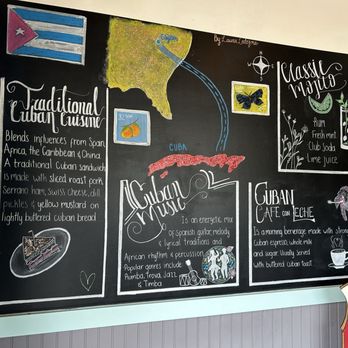 By Laura Latorre
Traditional
Cuban Cuisine
Blends influences from Spain,
Africa, the Caribbean & China.
A traditional Cuban sandwich
is made with sliced roast pork,
Serrano ham, swiss cheese, dill
pickles & yellow mustard on
lightly buttered cuban bread
CUBA
Cuban
Music
Is an energetic mix
of Spanish guitar melody
& lyrical traditions and
African rhythm & percussion.
Popular genres include
Rumba, Trova, Jazz
& Timba
Classic
Mojito
Rum
Fresh mint
Club Soda
Lime juice
CUBAN
CAFE con LECHE
Is a morning beverage made with strong
Cuban espresso, whole milk
and sugar. Usually served
with buttered cuban toast